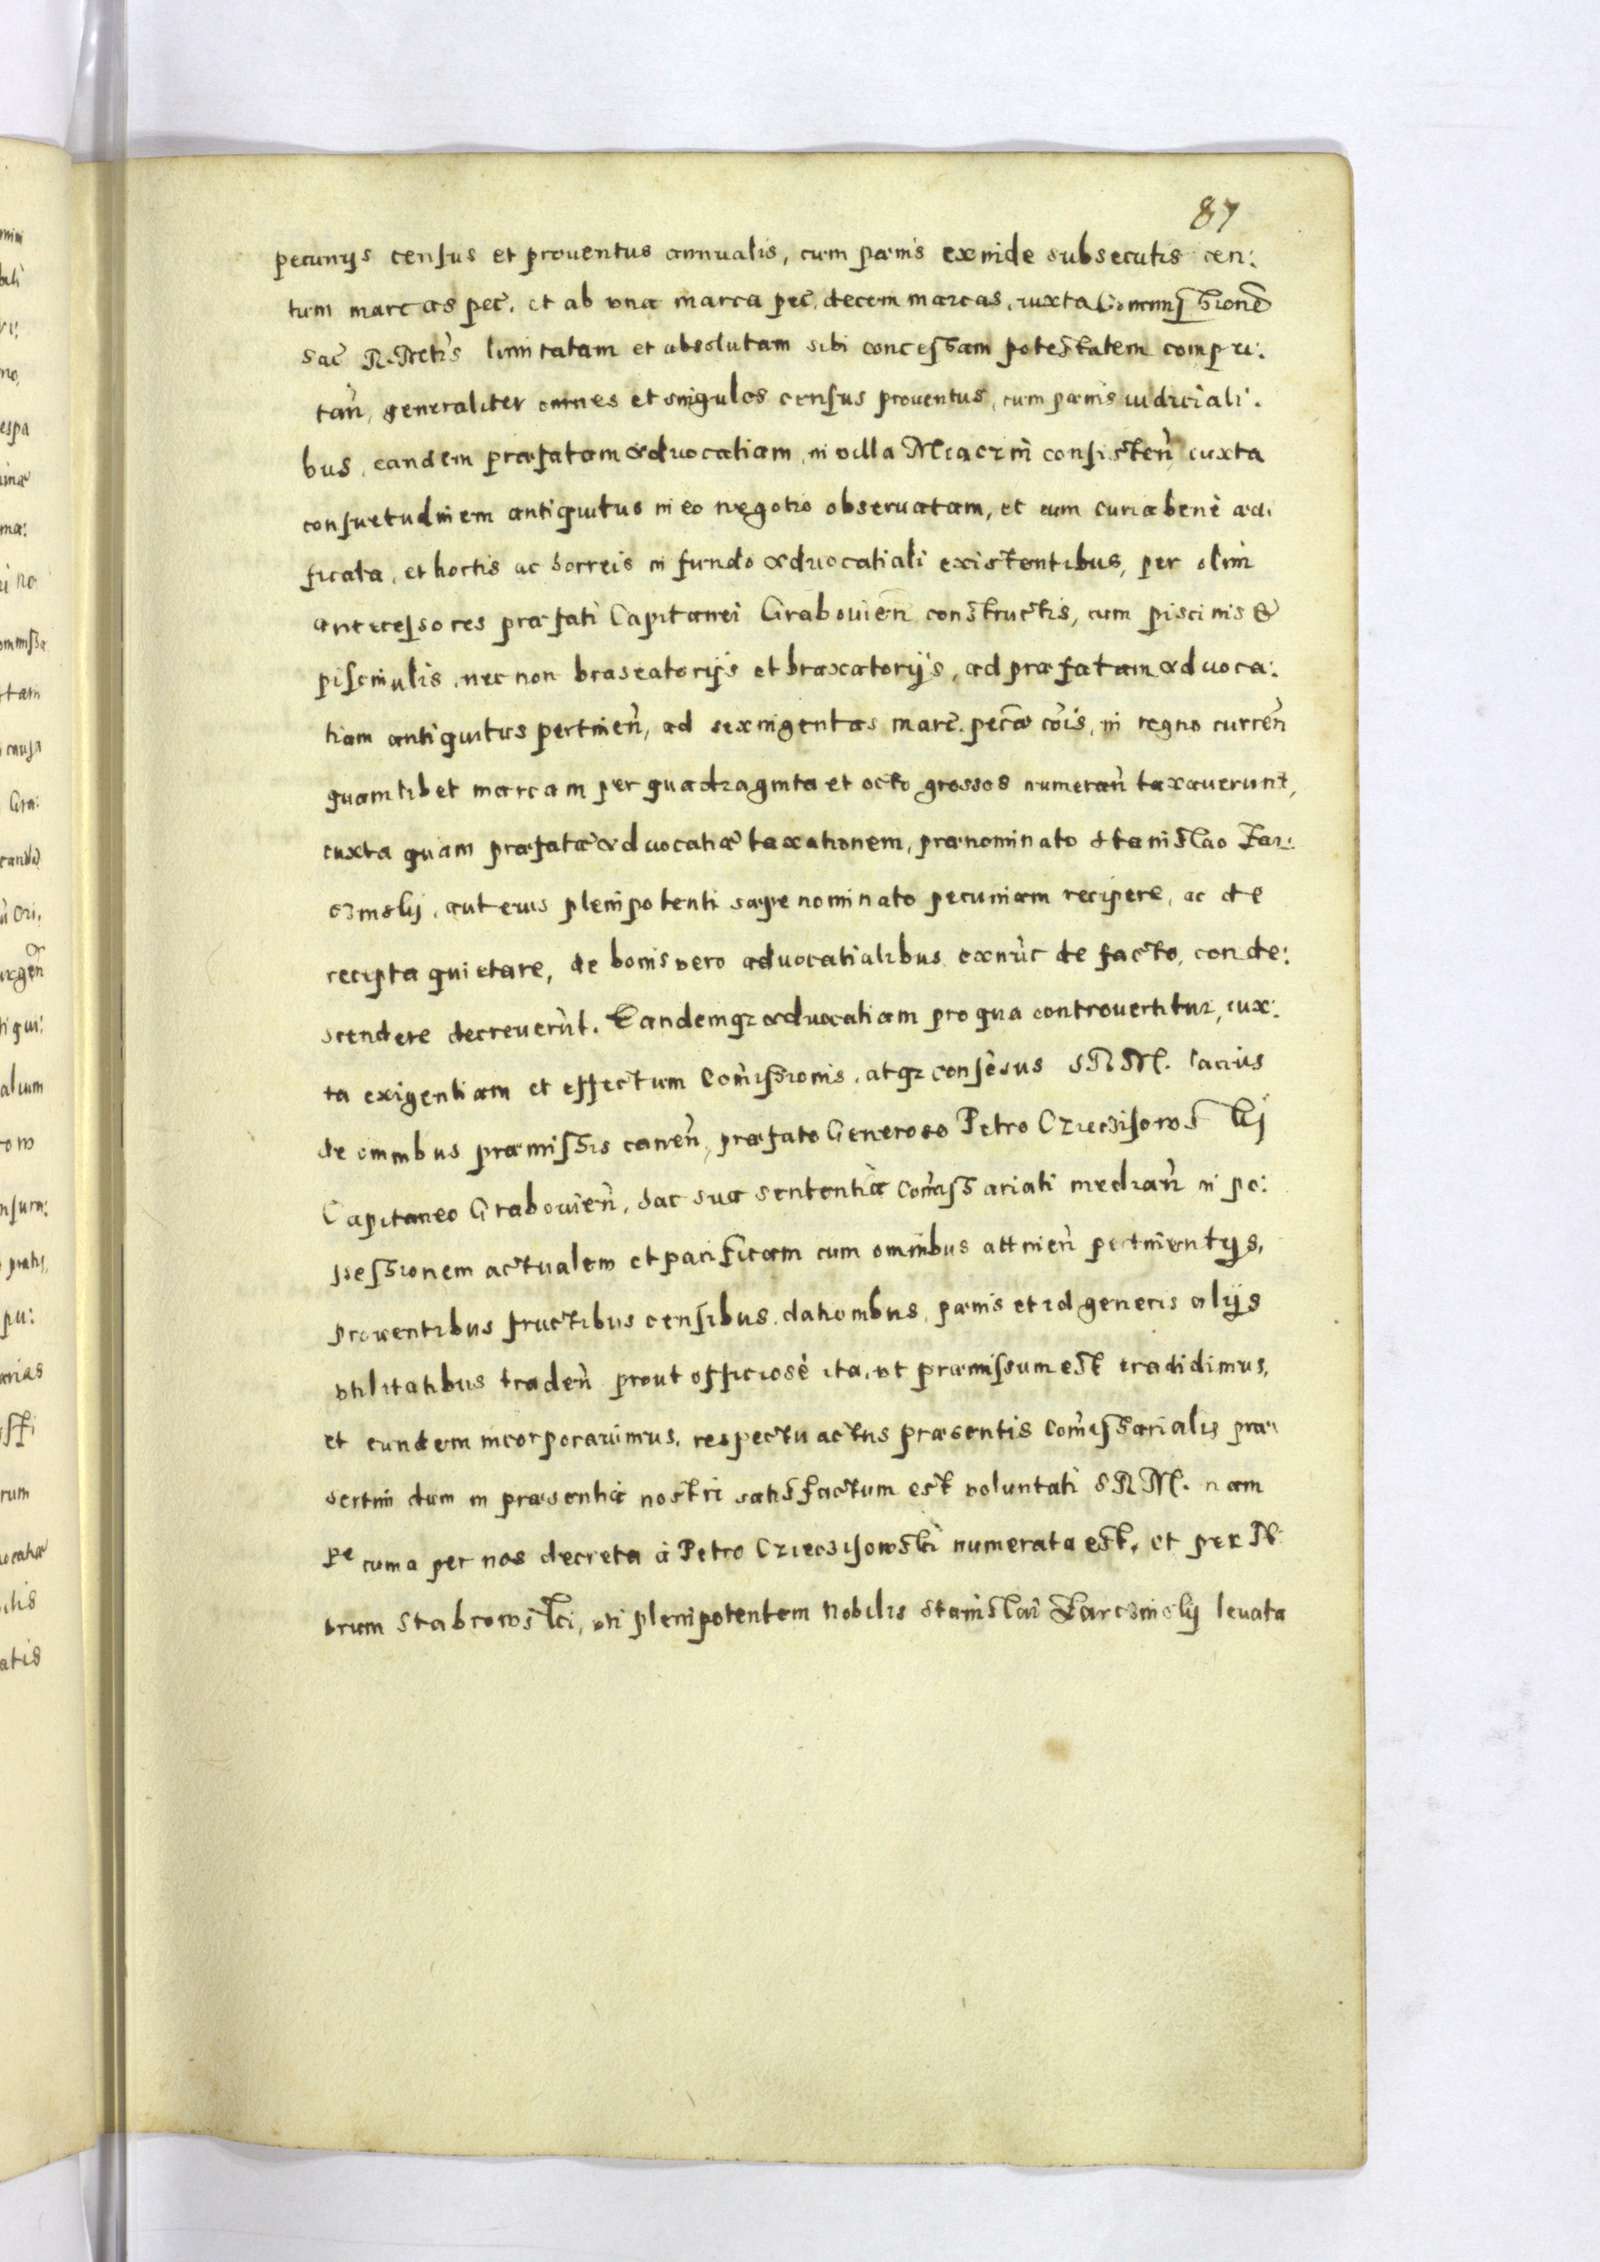 87
pecunijs census et prouentus annualis, cum pænis exinde subsecutis cen:
tum marcas pec̃. et ab vna marca pec̃. decem marcas, iuxta Commissionẽ
Sac̃ R. Mttis limitatam et absolutam sibi concessam potestatem compu:
tañ, generaliter omnes et singulos census prouentus, cum pænis iudiciali:
bus, eandem præfatam aduocatiam, in villa consisteñ iuxta
consuetudinem antiquitus in eo negotio obseruatam, et cum curia benè ædi
ficata, et hortis ac horreis in fundo aduocatiali existentibus, per olim
antecessores præfati Capitanei Grabouieñ constructis, cum piscinis &
piscinulis, nec non braseatorijs et braxatorijs, ad præfatam aduoca:
tiam antiquitus pertineñ, ad sexingentas marc̃. pecæ cõis, in regno curreñ
quamlibet marcam per quadraginta et octo grossos numerañ taxauerunt,
iuxta quam præfatæ aduocatiæ taxationem, prænominato Stanislao Zar:
czinskij, aut eius plenipotenti sæpe nominato pecuniam recipere, ac de
recepta quietare, de bonis vero aduocatialibus exnũc de facto, conde:
scendere decreuerũt. Eandemq; aduocatiam pro qua controuertitur, iux:
ta exigentiam et effectum Comĩssionis, atq; consẽsus S R M. latius
de omnibus præmissis caneñ, præfato Generoso Petro
Capitaneo Grabouieñ, hac sua sententia Comĩssariati mediañ in po:
ssessionem actualem et pacificam cum omnibus attineñ pertinentijs,
prouentibus fructibus censibus, dationibus, pænis et id generis alijs
vtilitatibus tradeñ prout officiosè ita, vt præmissum est tradidimus,
et eundem incorporauimus, respectu actus præsentis Comĩssarialis præ:
sertim dum in præsentia nostri satisfactum est voluntati S R M. nam
Pecunia per nos decreta à Petro numerata est, et per N:
brum Stabrowski, vti plenipotentem Nobilis Stanislai Zarczinskij leuata